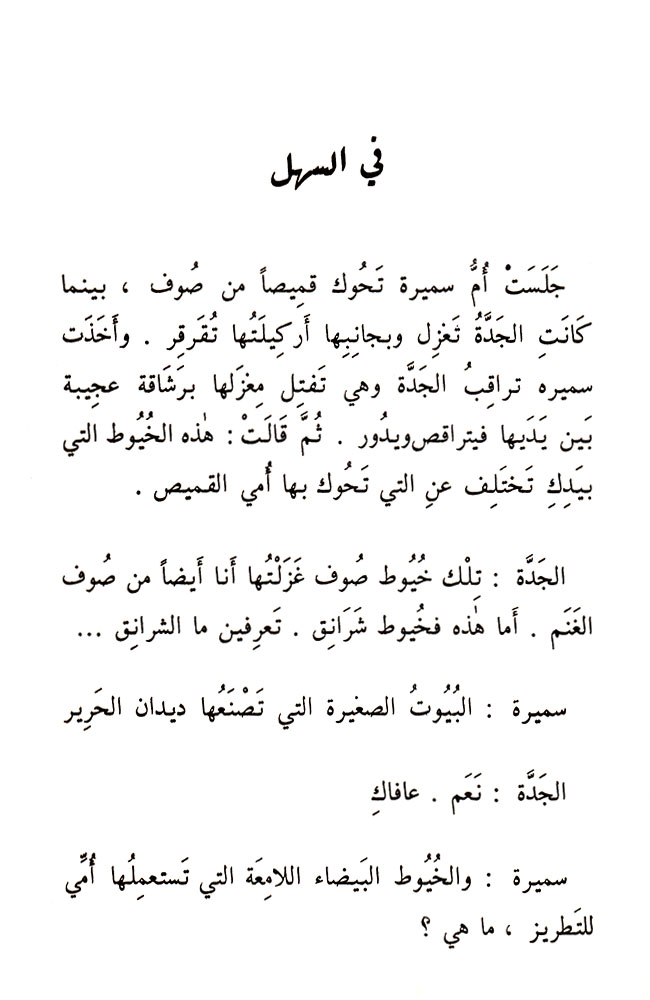 في السهل
جَلَسَتْ أُمُّ سميرة تَحُوك قمِيصاً من صُوف ، بينما
كَانَتِ الجَدَّةُ تَغزِل وبجانِبِها أَركِيلَتُها تُقَرقِر . وأَخَذَت
سميره تراقِبُ الجَدَّة وهي تَفتِل مِغزَلها برَشَاقة عجِيبة
بَين يَدَيها فيتراقص ويدُور . ثُمَّ قَالَتْ : هٰذه الخُيُوط التي
بيَدِكِ تَختَلِف عنِ التي تَحُوك بها أُمي القميص .
الجَدَّة : تِلْك خُيُوط صُوف غَزَلْتُها أَنا أَيضاً من صُوف
الغَنَم . أَما هٰذه فخُيوط شَرَانِق . تَعرِفين ما الشرانِق ...
سميرة : البُيُوتُ الصغيرة التي تَصْنَعُها ديدان الحَرِير
الجَدَّة : نَعَم . عافاكِ
سميرة : والخُيُوط البَيضاء اللامِعَة التي تَستعمِلُها أُمِّي
للتَطريز ، ما هي ؟